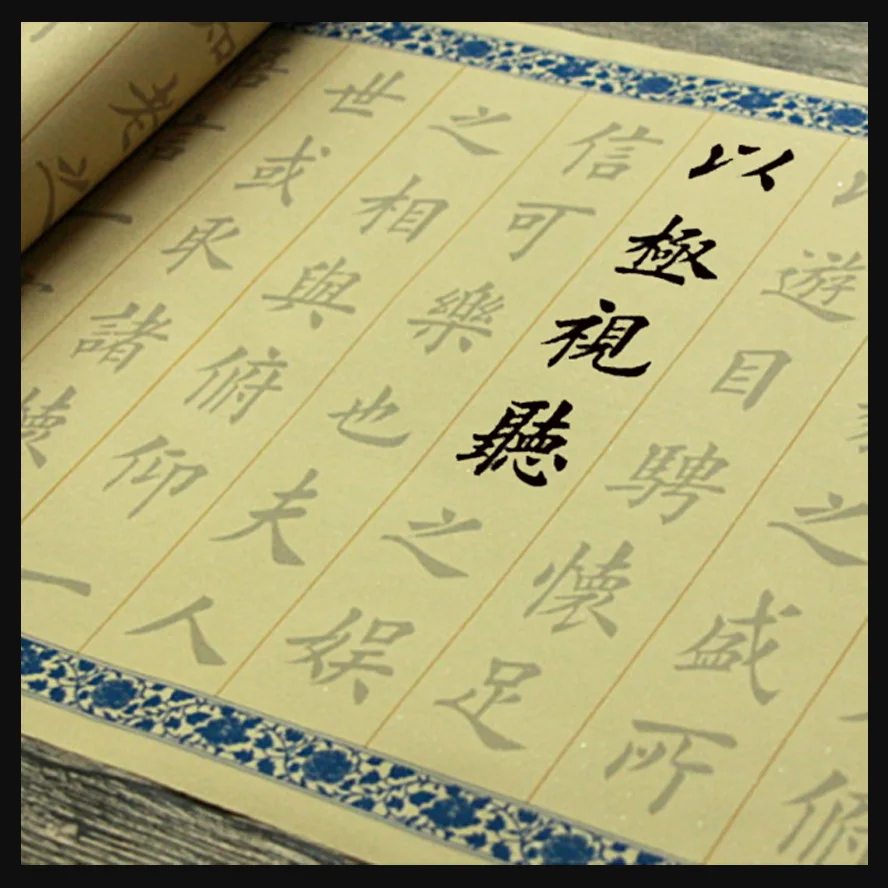 俯
之盛所
遊目騁懷足
以極視聽之娱
信可樂也夫人
之相與俯仰一
世或取諸懷
悟言一